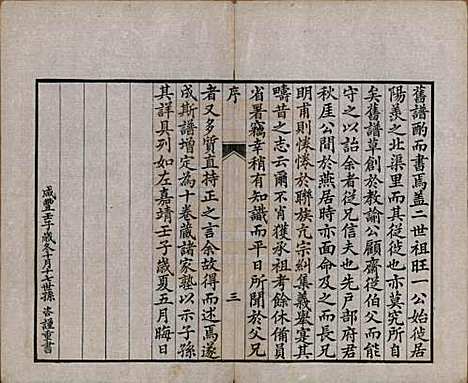 舊譜酌而書焉蓋二世祖旺一公始徙居
陽羨之北渠里而其從徙也亦莫究所自
矣舊譜草創於教諭公顧齋從伯父而能
守之以詒余者從兄信夫也先戶部府君
秋厓公閒於燕居時亦面命及之而長兄
明甫則惓惓於聯族亢宗糾集義舉寔其
疇昔之志云爾不肖獲承祖考餘休備員
省署竊幸稍有知識而平日所聞於父兄
序
三
者又多質直持正之言余故其而述焉遂
成斯譜增定為十卷藏諸家塾以示子孫
其詳具列如左嘉靖壬子歲夏五月晦日
咸豐壬子歲冬十月十七世孫 謹重書